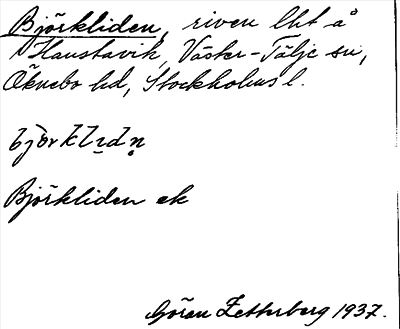 Björkliden, riven lht å
Haustavik, Väster-Tälje sn,
Öknebo hd, Stockholms l.
björklıdn̥
Björkliden ek
Göran Zetterberg 1937.